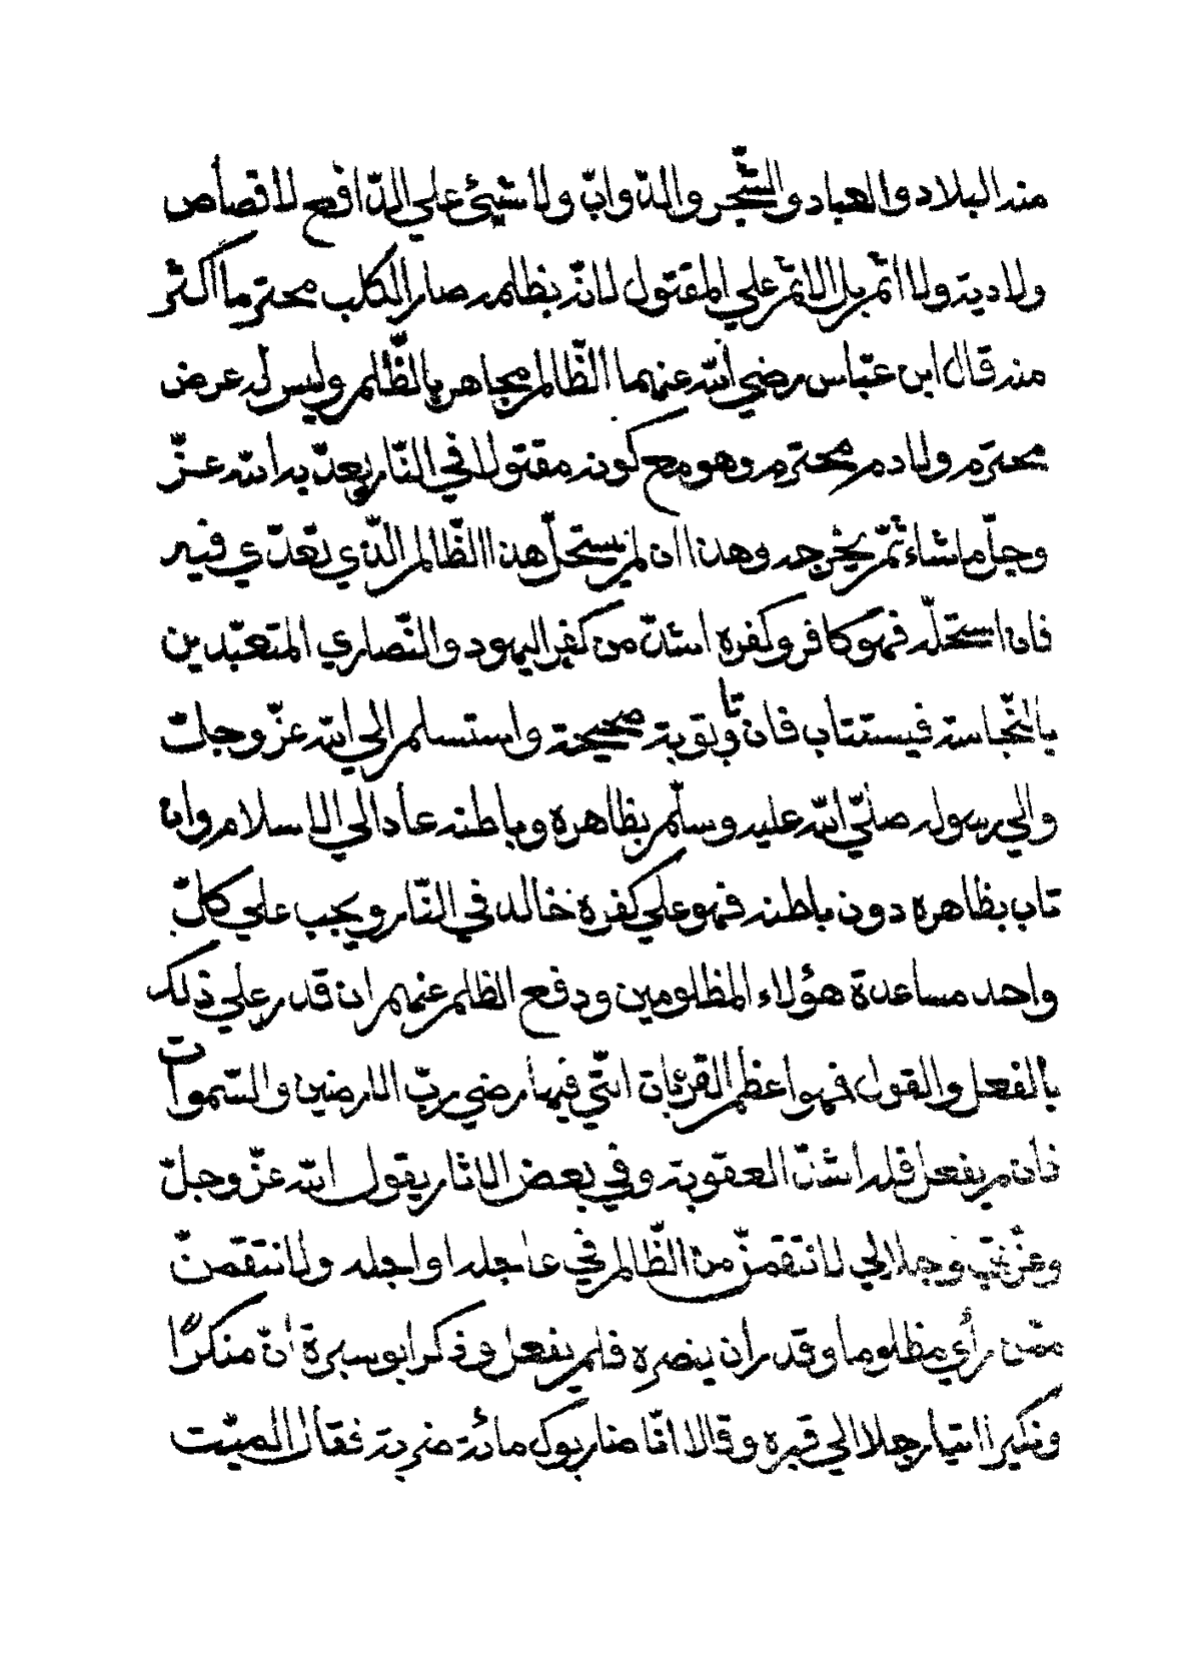 منه البلاد والعباد والشّجر والدّوابّ ولا شيئ علي الدّافع لا قصاص
ولا دية ولا اثم بل الاثم علي المقتول لانّه بظلمه صار الكلب محترما اكثر
منه قال ابن عبّاس رضي الله عنهما الظّالم مجاهر بالظّلم وليس له عرض
محترم ولا دم محترم وهو مع كونه مقتولا في النّار يعذّبه الله عزّ
وجلّ ماشاء ثمّ يخرجه وهذا ان لم يستحلّ هذا الظّالم الّذي تعدّي فيه
فان استحلّه فهو كافر وكفره اشدّ من كفر اليهود والنّصاري المتعبّدين
بالنّجاسة فيستتاب فان تاب توبة صحيحة واستسلم الي الله عزّ وجلّ
والي رسوله صلّي الله عليه وسلّم بظاهره وباطنه عاد الي الاسلام وان
تاب بظاهره دون باطنه فهو علي كفره خالد في النّار ويجب علي كلّ
واحد مساعدة هؤلاء المظلومين ودفع الظلم عنهم ان قدر علي ذلك
بالفعل والقول فهو اعظم القربات الّتي فيها رضي ربّ الارضين والسّموات
فان لم يفعل فله اشدّ العقوبة وفي بعض الاثار يقول الله عزّ وجلّ
وعزّتي وجلالي لانتقمنّ من الظّالم في عاجله او اجله ولانتقمنّ
ممّن رأي مظلوما وقدر ان ينصره فلم يفعل وذكر ابو سبرة انّ منكرًا
ونكيرا اتيا رجلا الي قبره وقالا انّا ضاربوك مائة ضربة فقال الميّت